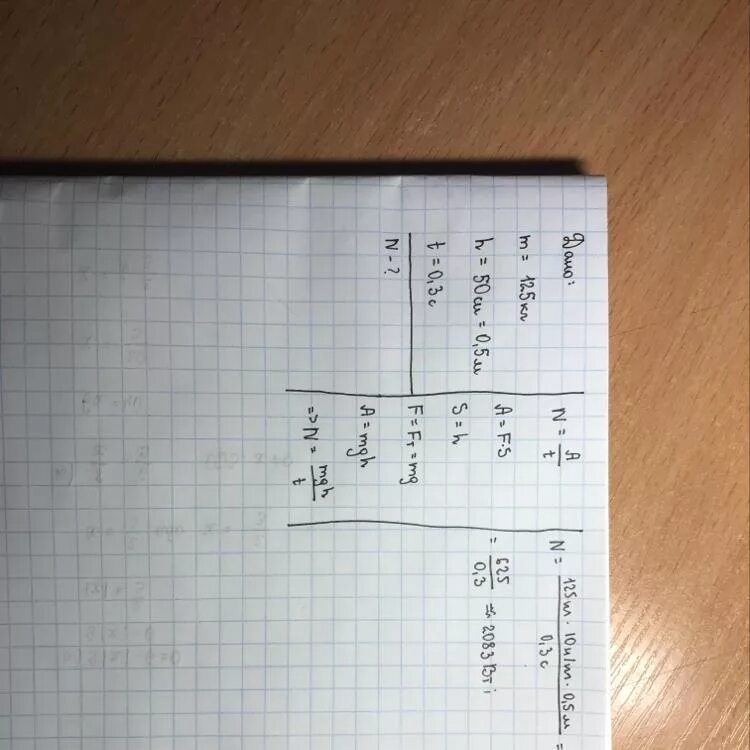 Дано:
m = 125кг
h = 50см = 0,5м
t = 0,3с
N - ?
N = A/t
A = F·S
S = h
F = Fт = mg
A = mgh
=> N = mgh/t
N = 125кг · 10н/кг · 0,5м / 0,3с =
= 625/0,3 ≈ 2083 Вт